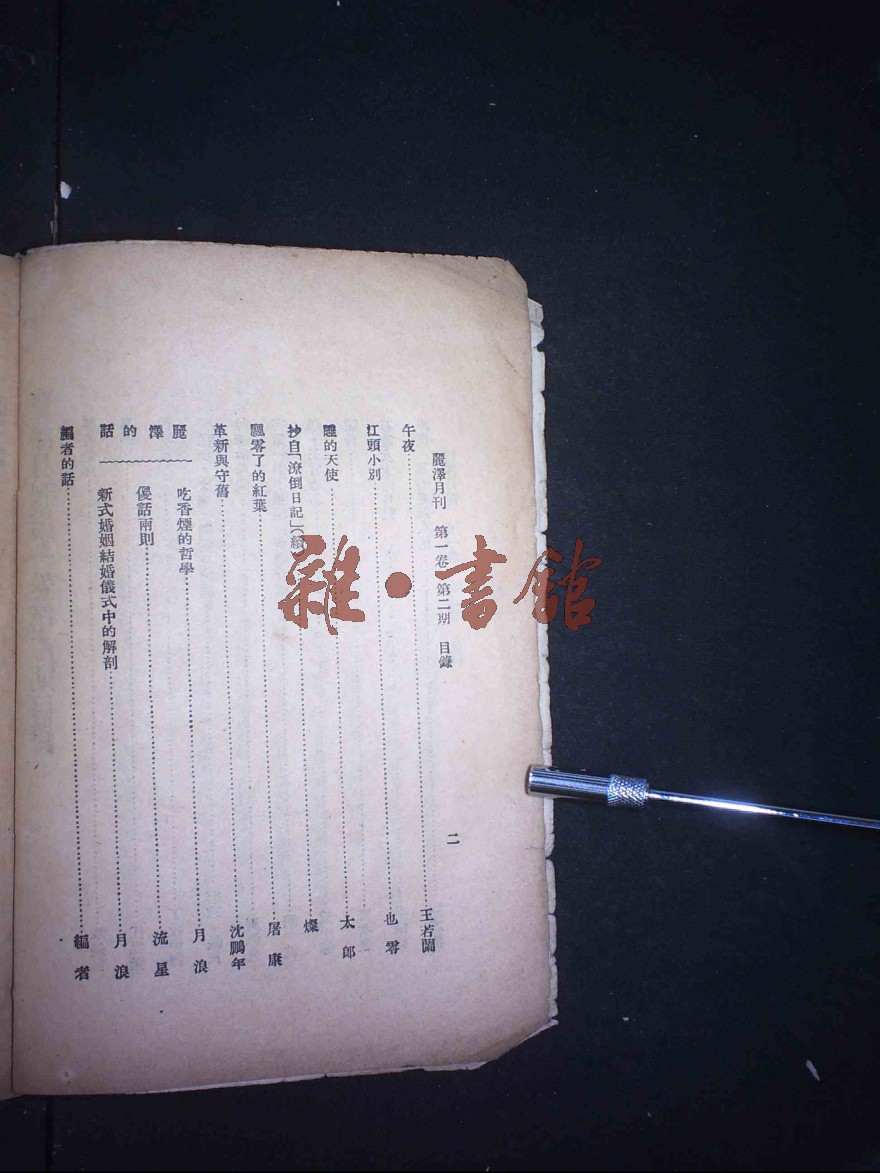 麗澤月刊 第一卷 第二期 目錄
二
午夜……王若蘭
江頭小別……也零
的天使……太郎
抄自「潦倒日記」(續……燦
飄零了的紅葉……屠康
革新與守舊……沈鵬年
麗澤的話
吃香煙的哲學……月浪
儍話兩則……流星
新式婚姻結婚儀式中的解剖……月浪
編者的話……編者
雜·書館